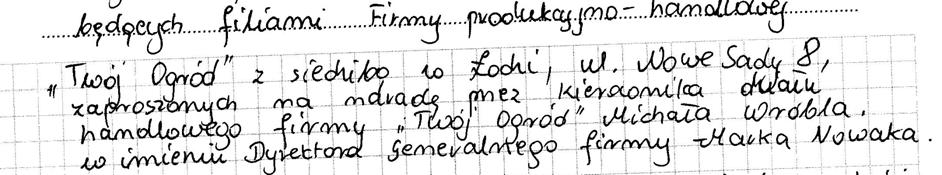 będących filiami Firmy produkcyjno-handlowej
„Twój Ogród” z siedzibą w Łodzi, ul. Nowe Sady 8,
zaproszonych na naradę przez kierownika działu
handlowego firmy „Twój Ogród” Michała Wróbla.
w imieniu Dyrektora Generalnego firmy Marka Nowaka.